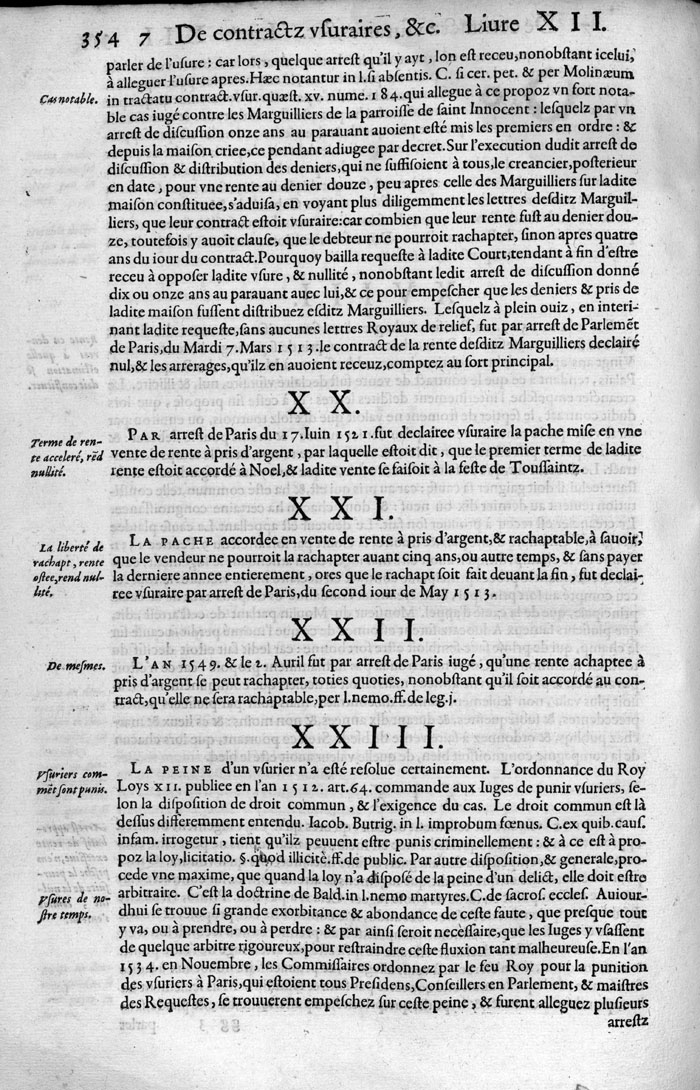 354 7 De contractz vſuraires, &c. Liure XII.
parler de l'uſure: car lors, quelque arreſt qu'il y ayt, lon eſt receu, nonobſtant icelui,
à alleguer l'uſure apres. Hæc notantur in l. ſi abſentis. C. ſi cer. pet. & per Molinæum
Cas notable.
in tractatu contract. vſur. quæſt. xv. nume. 184. qui allegue à ce propoz vn fort nota-
ble cas iugé contre les Marguilliers de la parroiſſe de ſaint Innocent: leſquelz par vn
arreſt de diſcuſſion onze ans au parauant auoient eſté mis les premiers en ordre: &
depuis la maiſon criee, ce pendant adiugee par decret. Sur l'execution dudit arreſt de
diſcuſſion & diſtribution des deniers, qui ne ſuffiſoient à tous, le creancier, poſterieur
en date, pour vne rente au denier douze, peu apres celle des Marguilliers ſur ladite
maiſon conſtituee, s'aduiſa, en voyant plus diligemment les lettres deſditz Marguil-
liers, que leur contract eſtoit vſuraire: car combien que leur rente fuſt au denier dou-
ze, toutefois y auoit clauſe, que le debteur ne pourroit rachapter, ſinon apres quatre
ans du iour du contract. Pourquoy bailla requeſte à ladite Court, tendant à fin d'eſtre
receu à oppoſer ladite vſure, & nullité, nonobſtant ledit arreſt de diſcuſſion donné
dix ou onze ans au parauant auec lui, & ce pour empeſcher que les deniers & pris de
ladite maiſon fuſſent diſtribuez eſditz Marguilliers. Leſquelz à plein ouiz, en interi-
nant ladite requeſte, ſans aucunes lettres Royaux de relief, fut par arreſt de Parlemēt
de Paris, du Mardi 7. Mars 1513. le contract de la rente deſditz Marguilliers declairé
nul, & les arrerages, qu'ilz en auoient receuz, comptez au ſort principal.
XX.
Terme de ren-
te acceleré, rēd
nullité.
PAR arreſt de Paris du 17. Iuin 1521. fut declairee vſuraire la pache miſe en vne
vente de rente à pris d'argent, par laquelle eſtoit dit, que le premier terme de ladite
rente eſtoit accordé à Noel, & ladite vente ſe faiſoit à la feſte de Touſſaintz.
XXI.
La liberté de
rachapt, rente
oſtee, rend nul-
lité.
LA PACHE accordee en vente de rente à pris d'argent, & rachaptable, à ſauoir,
que le vendeur ne pourroit la rachapter auant cinq ans, ou autre temps, & ſans payer
la derniere annee entierement, ores que le rachapt ſoit fait deuant la fin, fut declai-
ree vſuraire par arreſt de Paris, du ſecond iour de May 1513.
XXII.
De meſmes.
L'AN 1549. & le 2. Auril fut par arreſt de Paris iugé, qu'une rente achaptee à
pris d'argent ſe peut rachapter, toties quoties, nonobſtant qu'il ſoit accordé au con-
tract, qu'elle ne ſera rachaptable, per l. nemo. ff. de leg. j.
XXIII.
Vſuriers com-
mēt ſont punis.
LA PEINE d'un vſurier n'a eſté reſolue certainement. L'ordonnance du Roy
Loys XII. publiee en l'an 1512. art. 64. commande aux Iuges de punir vſuriers, ſe-
lon la diſpoſition de droit commun, & l'exigence du cas. Le droit commun eſt là
deſſus differemment entendu. Iacob. Butrig. in l. improbum fœnus. C. ex quib. cauſ.
infam. irrogetur, tient qu'ilz peuuent eſtre punis criminellement: & à ce eſt à pro-
poz la loy, licitatio. §. quod illicitè. ff. de public. Par autre diſpoſition, & generale, pro-
cede vne maxime, que quand la loy n'a diſpoſé de la peine d'un delict, elle doit eſtre
Vſures de no-
ſtre temps.
arbitraire. C'eſt la doctrine de Bald. in l. nemo martyres. C. de ſacroſ. eccleſ. Auiour-
dhui ſe trouue ſi grande exorbitance & abondance de ceſte faute, que preſque tout
y va, ou à prendre, ou à perdre: & par ainſi ſeroit neceſſaire, que les Iuges y vſaſſent
de quelque arbitre rigoureux, pour reſtraindre ceſte fluxion tant malheureuſe. En l'an
1534. en Nouembre, les Commiſſaires ordonnez par le feu Roy pour la punition
des vſuriers à Paris, qui eſtoient tous Preſidens, Conſeillers en Parlement, & maiſtres
des Requeſtes, ſe trouuerent empeſchez ſur ceſte peine, & furent alleguez pluſieurs
arreſtz